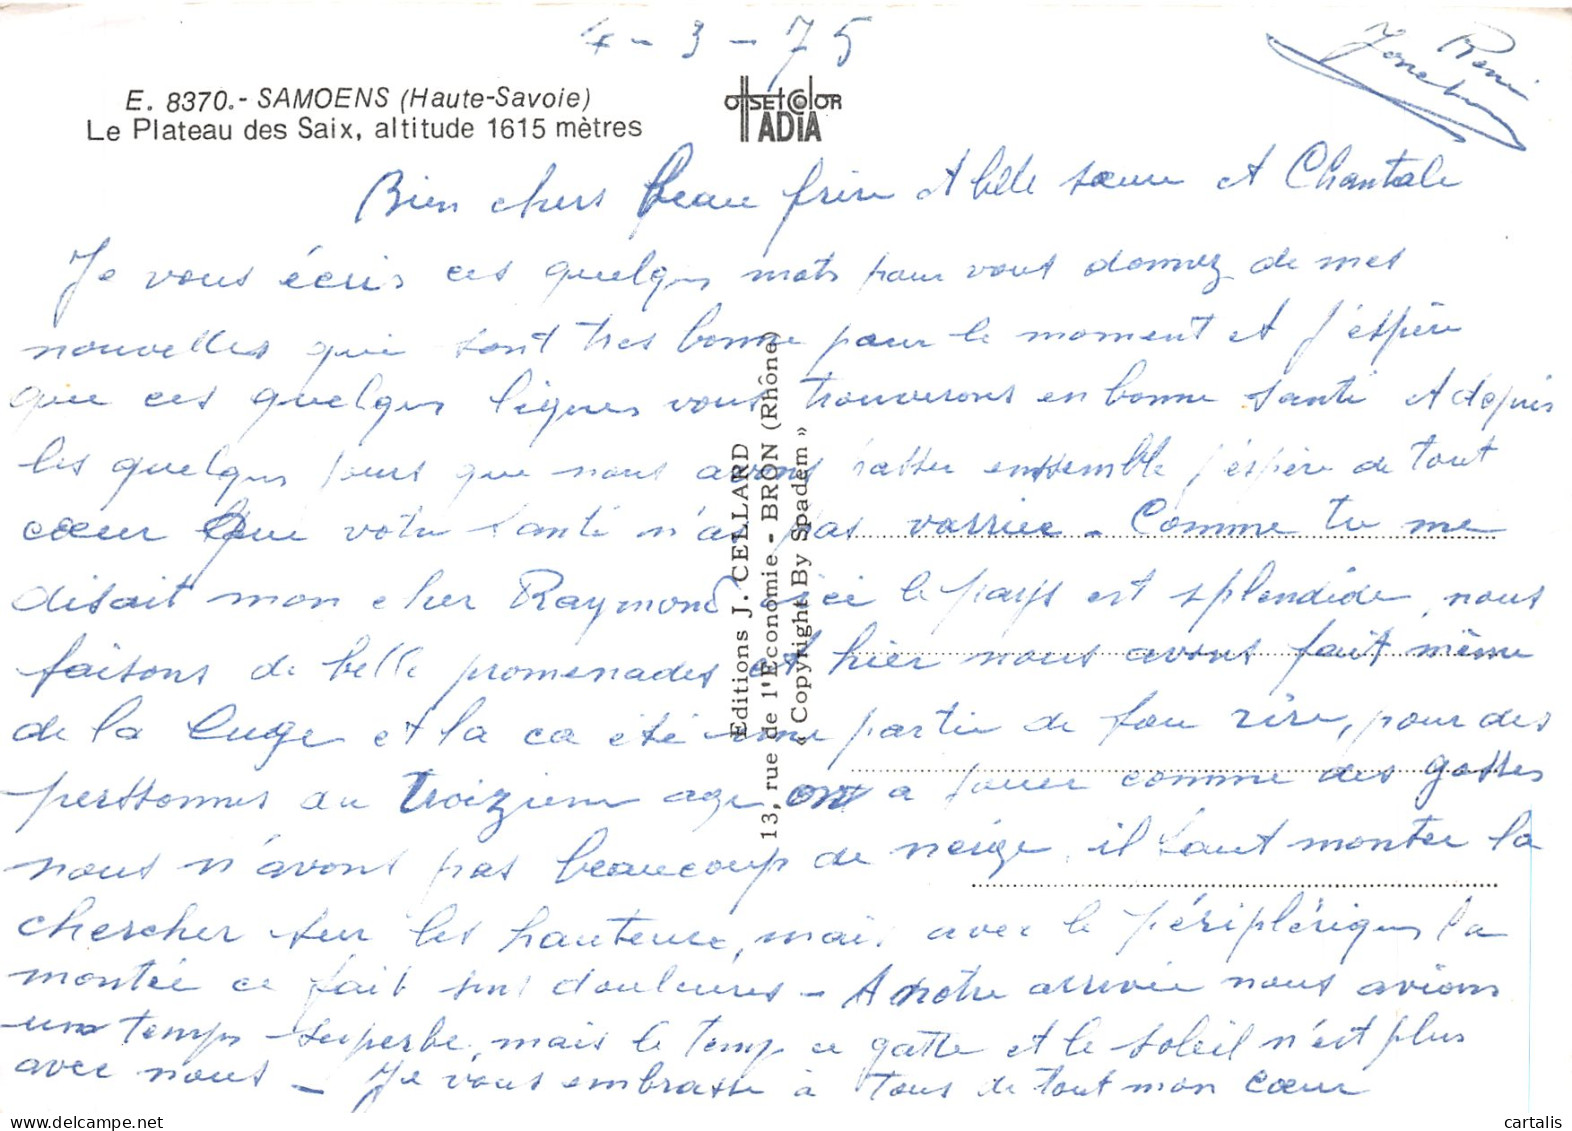 4-3-75
René
E. 8370.- SAMOENS (Haute-Savoie)
Le Plateau des Saix, altitude 1615 mètres
OffSEt COlOR
ADIA
Bien chers beau frère et belle sœur et Chantale
Je vous écris ces quelques mots pour vous donnez de mes
nouvelles qui sont tres bonne pour le moment et j'espère
que ces quelques lignes vous trouverons en bonne santé et depuis
les quelques jours que nous avons passer enssemble j'espère de tout
cœur que votre santé n'as pas varriee - Comme tu me
disait mon cher Raymond ici le pays est splendide, nous
faisons de belle promenades et hier nous avons fait même
de la luge et la ca été une partie de fou rire, pour des
perssonnes du troizieme age ont a jouer comme des gosses
nous n'avont pas beaucoup de neige, il faut monter la
chercher sur les hauteurs, mais avec le périphériques la
montée ce fait sens douleures - A notre arrivée nous avions
un temps superbe, mais le temps ce gatte et le soleil n'est plus
avec nous - Je vous embrasse à tous de tout mon cœur
Editions J. CELLARD
13, rue de l'Economie - BRON (Rhône)
« Copyright By Spadem »
cartalis.com